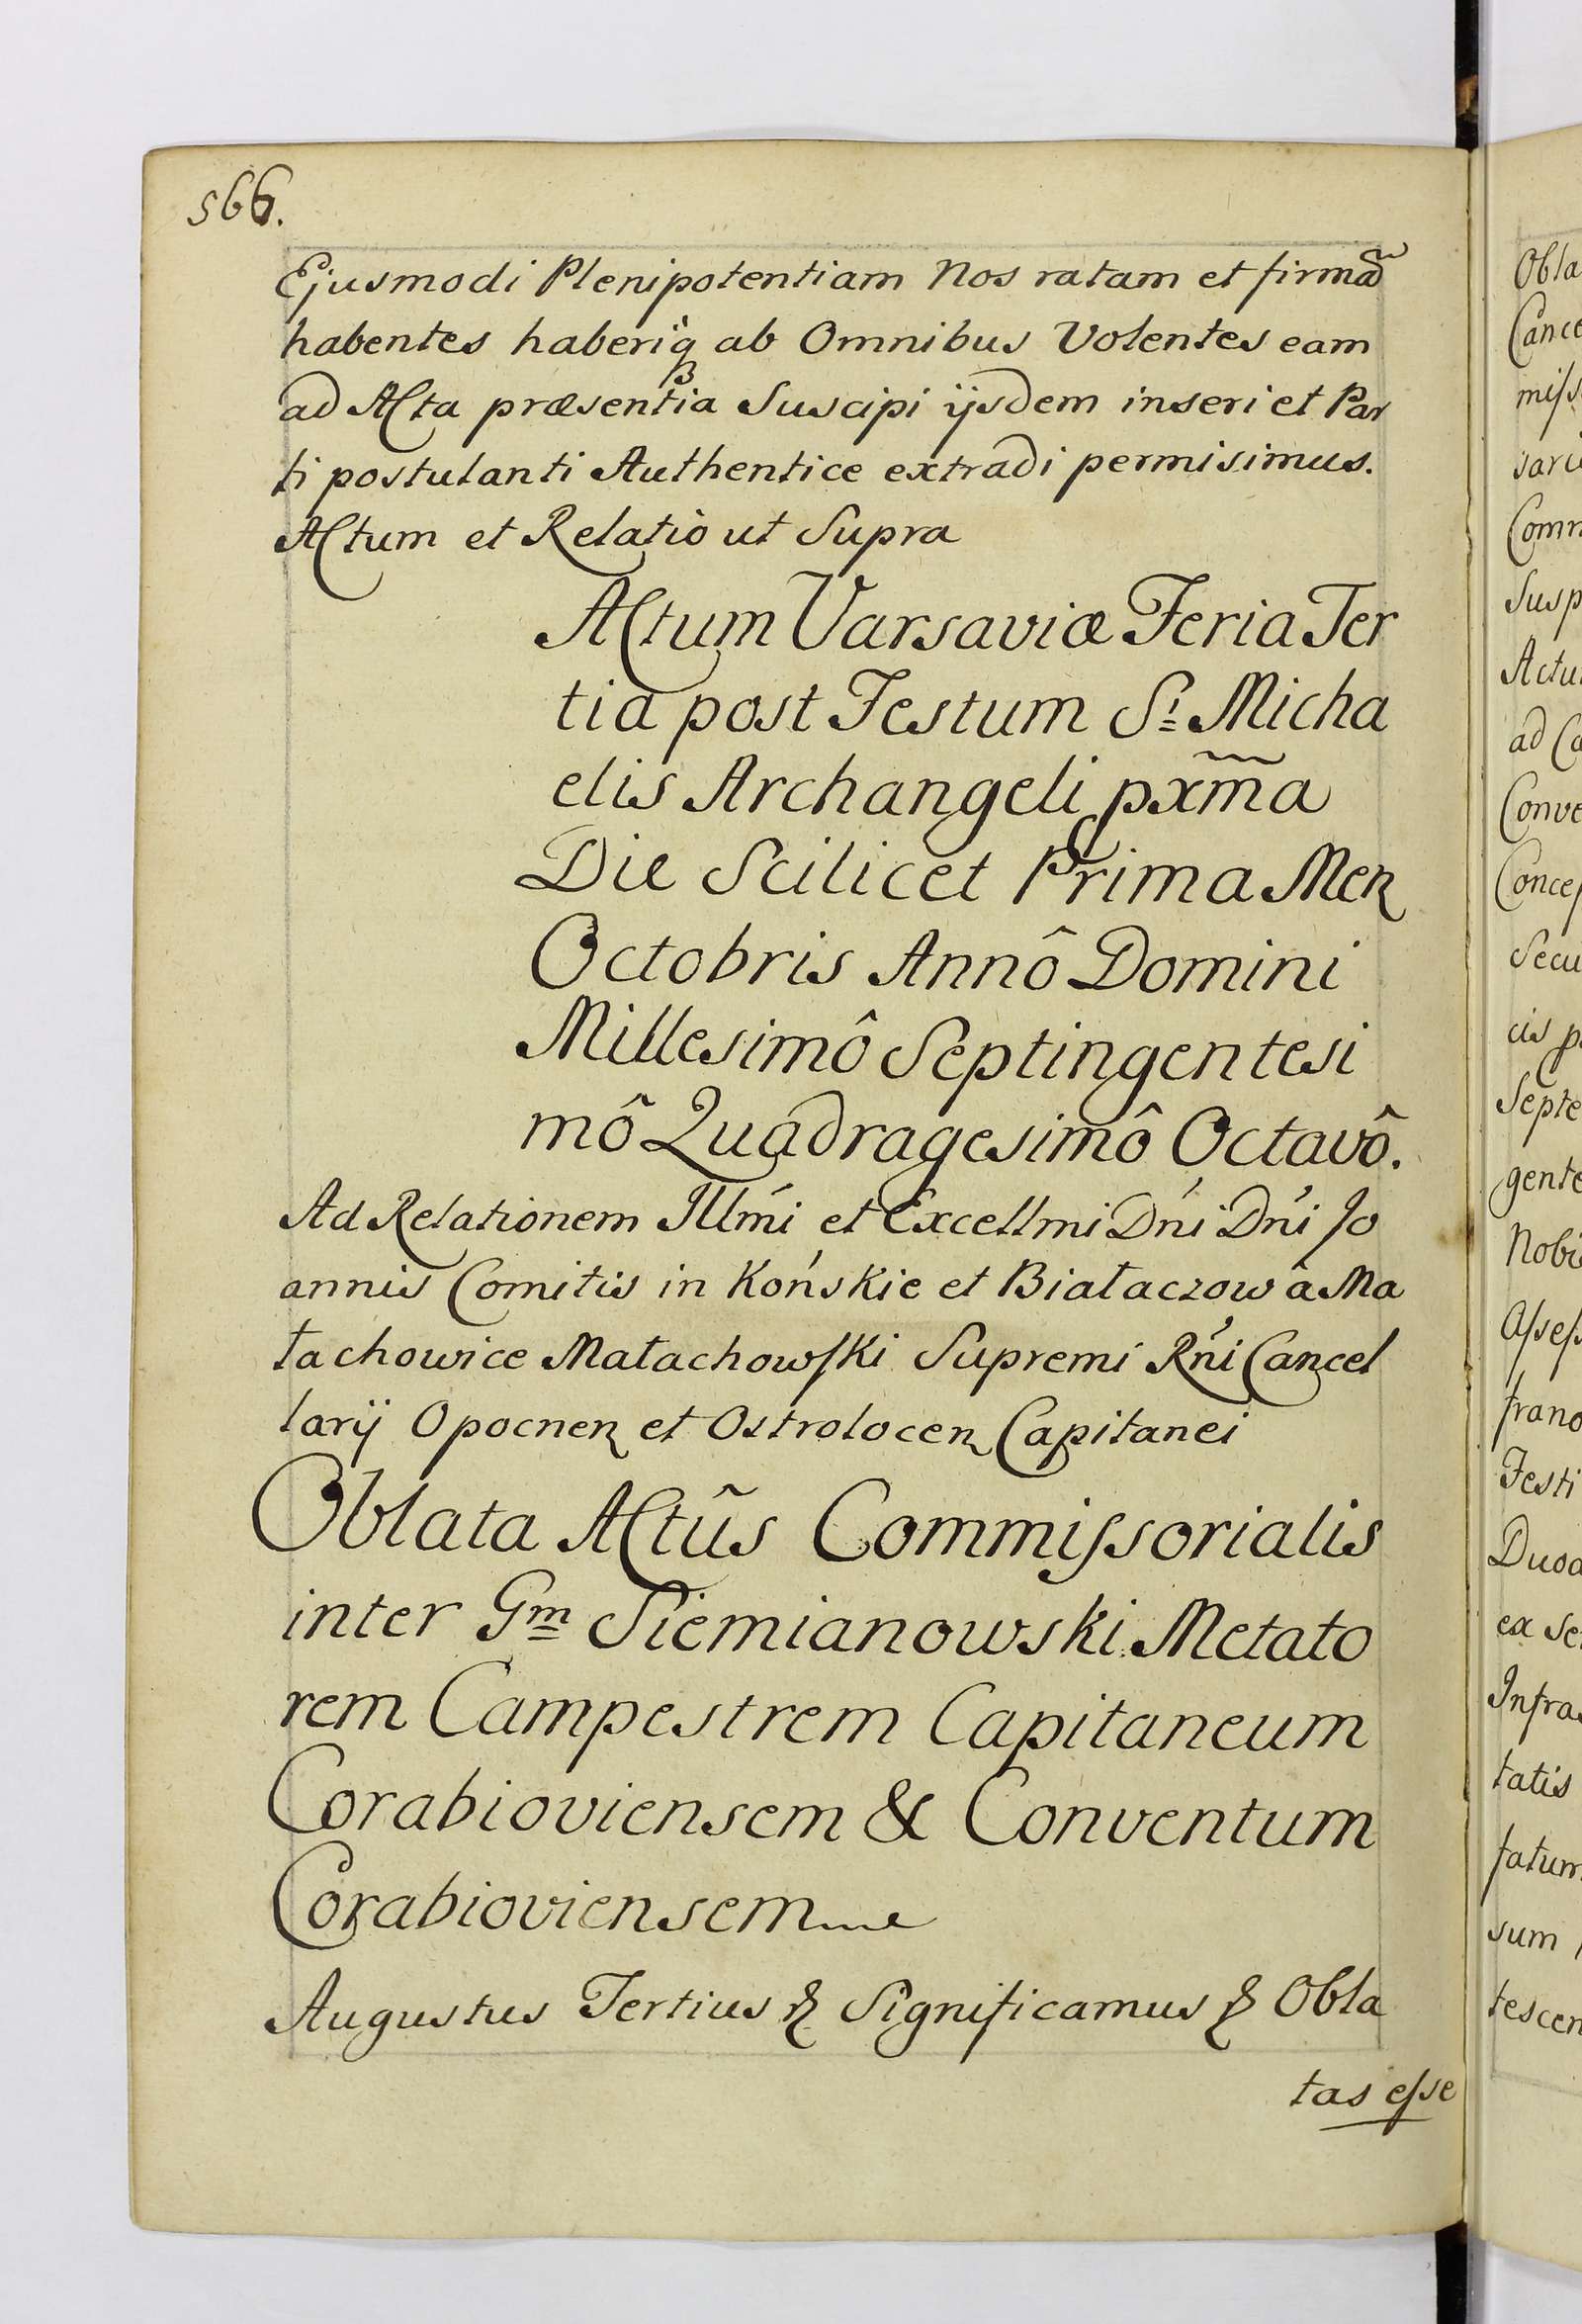 566.
Ejusmodi Plenipotentiam Nos ratam et firmã
habentes haberiq̀ ab Omnibus Volentes eam
ad Acta præsentia Suscipi ijsdem inseri et Par
ti postulanti Authentice extradi permisimus.
Actum et Relatio ut Supra
Actum Varsaviæ Feria Ter
tia post Festum Sⁱ Micha
elis Archangeli pxm̃a
Die Scilicet Prima Menꝫ
Octobris Annô Domini
Millesimô Septingentesi
mô Quadragesimô Octavô.
Ad Relationem Illm̃i et Excellmi Dńi Dńi Jo
annis Comitis in Końskie et Białaczow â Ma
łachowice Małachowſki Supremi Rńi Cancel
larij Opocnenꝫ et Ostrolocenꝫ Capitanei
Oblata Actûs Commiſsorialis
inter Gm Siemianowski Metato
rem Campestrem Capitaneum
Corabioviensem & Conventum
Corabioviensem
Augustus Tertius & Significamus & Obla
tas eſse
Obla
Cance
miſs
sari
Comm
Susp
Actu
ad Ca
Conve
Concep
Secu
cis p
Septe
gente
Nobi
Aſseſs
frano
Festi
Duod
ex se
Infra
tatis
tatum
sum
tescen